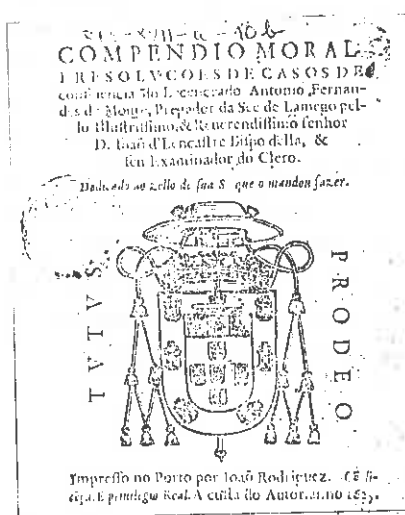 COMPENDIO MORAL
E RESOLVCOES DE CASOS DE
conſciencia do Licenceado Antonio Fernan-
des de Moure, Prègador da See de Lamego pel-
lo Illuſtriſsimo, & Reuerendiſsimo ſenhor
D. Ioaõ d'Lencaſtre Biſpo della, &
ſeu Examinador do Clero.
Dedicado ao Zello de ſua S que o mandou fazer.
TVTVS
PRODEO
Impreſſo no Porto por Ioaõ Rodriguez. Cõ li-
cẽça. E priuilegio Real. A cuſta do Autor. Anno